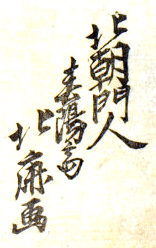 北朝門人
春陽斎
北麻画